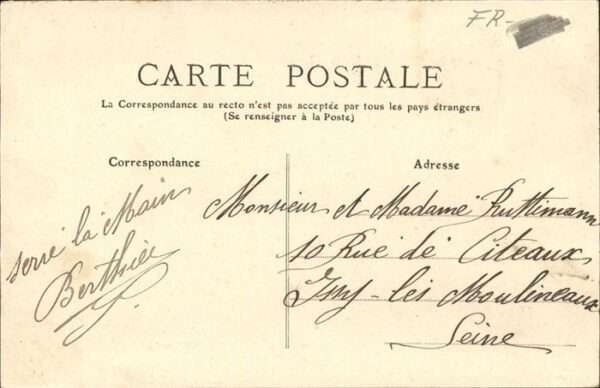 FR-
CARTE POSTALE
La Correspondance au recto n'est pas acceptée par tous les pays étrangers
(Se renseigner à la Poste)
Correspondance
serre la Main
Berthier
Adresse
Monsieur et Madame Ruttimann
10 Rue de Citeaux
Issy-les Moulineaux
Seine